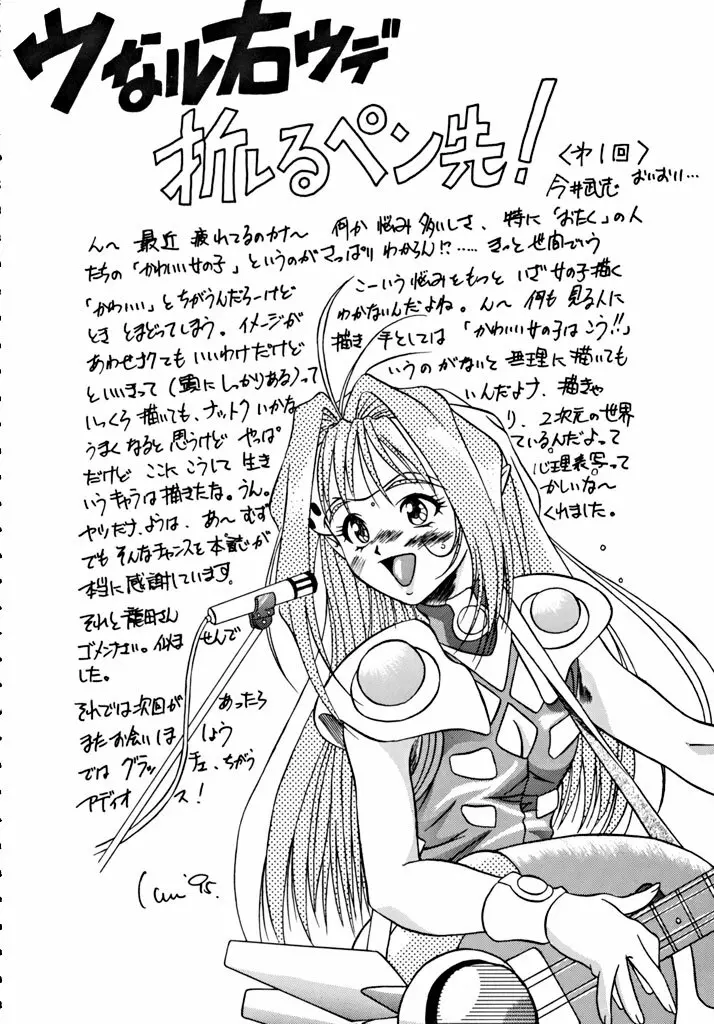 ウなル右ウデ
折レるペン先!
〈オ1回〉
今井武志 おいおい…
ん〜 最近 疲れてるのカナ〜 何か悩み多いしさ、特に「おたく」の人
たちの「かわいい女の子」というのがさっぱりわからん!?…… きっと世間でいう
「かわいい」とちがうんだろーけど こーいう悩みをもっと いざ女の子描く
とき とまどってしまう。イメージが わかないんだよね。ん〜 何も見る人に
あわせナクてもいいわけだけど 描き手としては「かわいい女の子はこう!!」
といいきって(頭にしっかりある)って いうのがないと無理に描いても
いっくら描いても、ナットクいかな いんだよナ、描きゃ
うまくなると思うけど やっぱ り、2次元の世界
だけど ここにこうして 生き ているんだよって
いうキャラは描きたな。うん。 心理表写って
ヤツだけ、ようは、あ〜むず かしいな〜
でもそんなチャンスを本誌が くれました。
本当に感謝しています。
それと龍田さん
ゴメンナさい。似ま せんで
した。
それでは次回が あったら
またお会いしま しょう
では グラッ チェ、ちがう
アディオ ス!
'95.